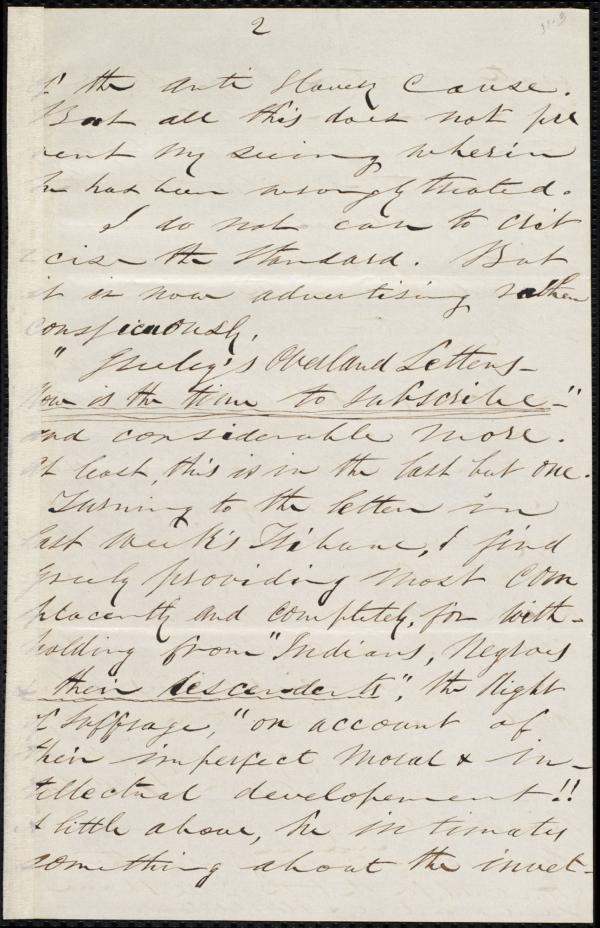 2
of the Anti Slavery Cause.
But all this does not pre
vent my seeing wherein
he has been wrongly treated.
I do not care to crit
icise the Standard. But
it is now advertising rather
conspicuously,
"Greeley's Overland Letters-
Now is the time to subscribe-"
and considerable more.
At least, this is in the last but one.
Turning to the letter in
last week's Tribune, I find
Greely providing most com
placently and completely, for with-
holding from "Indians, Negroes
& their descendents", the Right
of Suffrage, "on account of
their imperfect moral & in-
tellectual developement!!
A little above, he intimates
something about the invet-